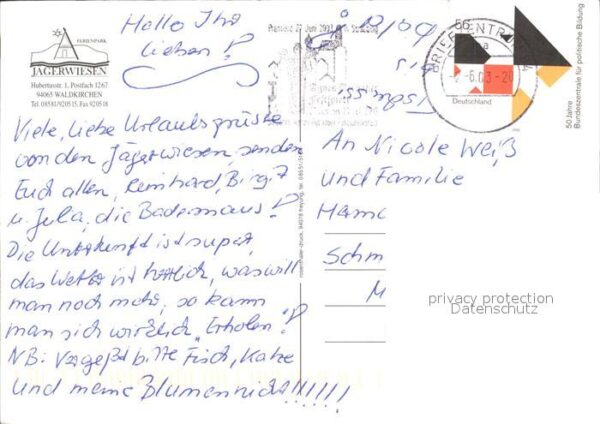 FERIENPARK
JÄGERWIESEN
Hubertusstr. 1, Postfach 1267
94065 WALDKIRCHEN
Hallo Ihr
Lieben!
Viele, liebe Urlaubsgrüße
von den Jägerwiesen senden
Euch allen, Reinhard, Birgit
u. Jula, die Bademaus!
Die Unterkunft ist super,
das Wetter ist herrlich, was will
man noch mehr, so kann
man sich wirklich "Erholen"!
NB: Vergeßt bitte Fisch, Katze
und meine Blumen nicht!!!!!!!
BRIEFZENTRUM
6.03-20
56
Deutschland
50 Jahre
Bundeszentrale für politische Bildung
An Nicole Weiß
und Familie
Schm
M
privacy protection
Datenschutz